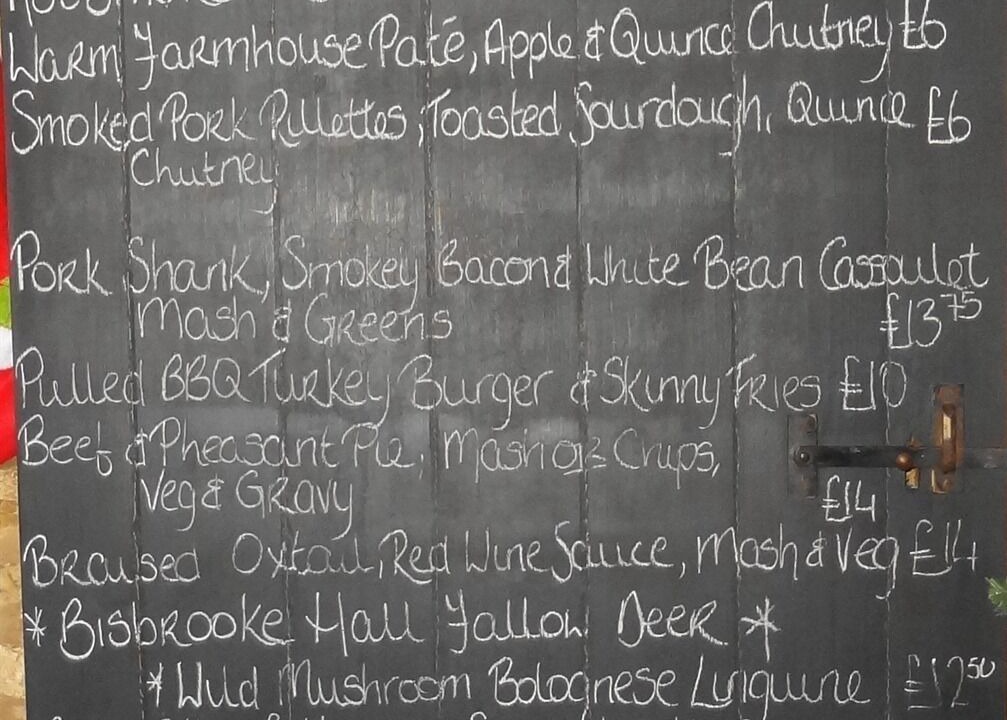 Warm Farmhouse Paté, Apple & Quince Chutney £6
Smoked Pork Rillettes, Toasted Sourdough, Quince £6
Chutney
Pork Shank, Smokey Bacon & White Bean Cassoulet
Mash & Greens £13.75
Pulled BBQ Turkey Burger & Skinny Fries £10
Beef & Pheasant Pie, Mash or Chips,
Veg & Gravy £14
Braised Oxtail, Red Wine Sauce, Mash & Veg £14
* Bisbrooke Hall Fallow Deer *
* Wild Mushroom Bolognese Linguine £12.50